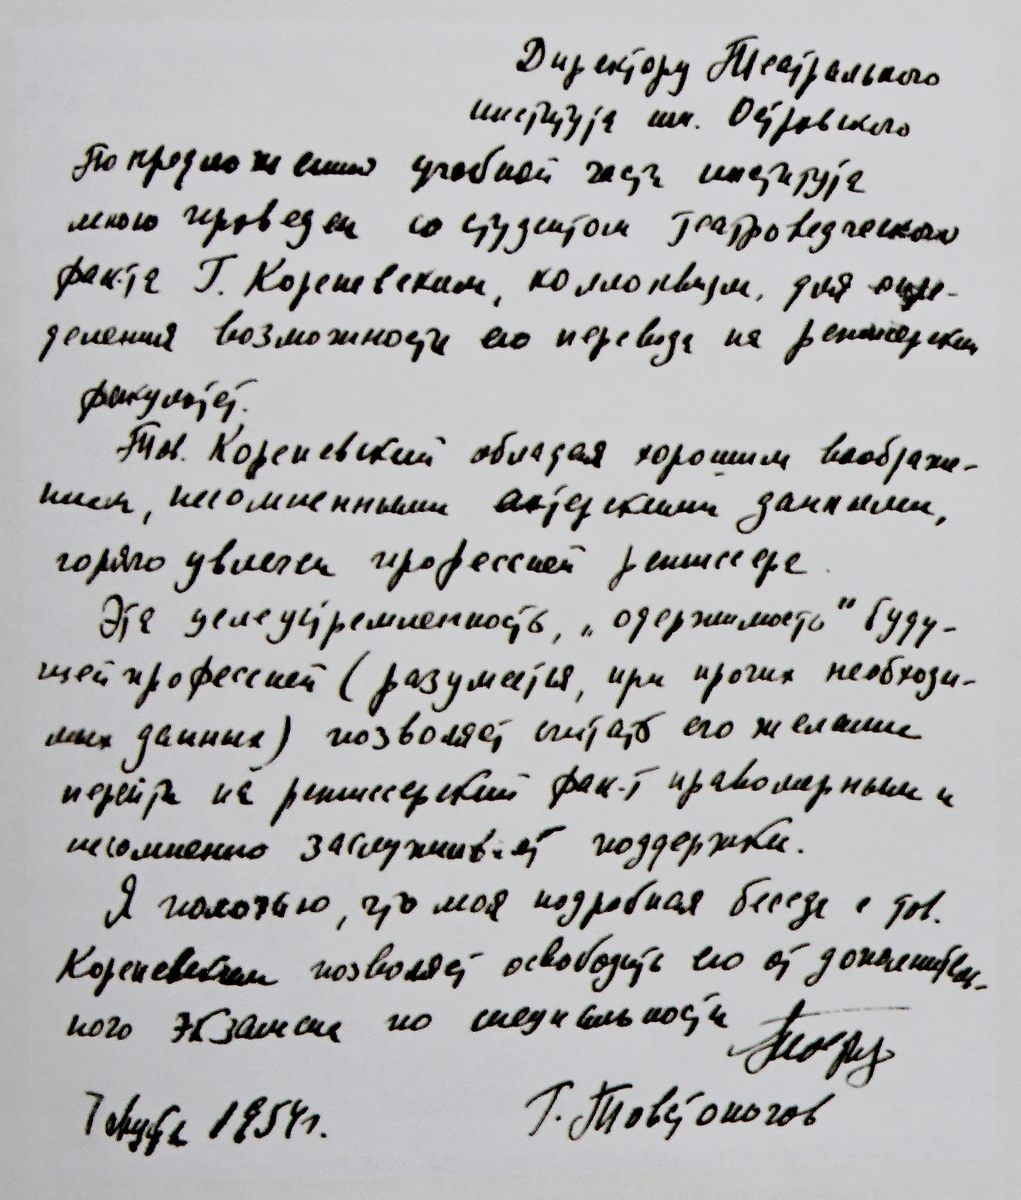 Директору Театрального
института им. Островского
По предложению учебной части института
мною проведен со студентом театроведческого
фак-та Г. Кореневским, коллоквиум, для опре-
деления возможности его перевода на режиссерский
факультет.
Тов. Кореневский обладая хорошим воображе-
нием, несомненными актерскими данными,
горячо увлечен профессией режиссера.
Эта целеустремленность, „одержимость" буду-
щей профессией (разумеется, при прочих необходи-
мых данных) позволяет считать его желание
перейти на режиссерский фак-т правомерным и
несомненно заслуживает поддержки.
Я полагаю, что моя подробная беседа с тов.
Кореневским позволяет освободить его от дополнитель-
ного экзамена по специальности
Г. Товстоногов
7 августа 1954 г.